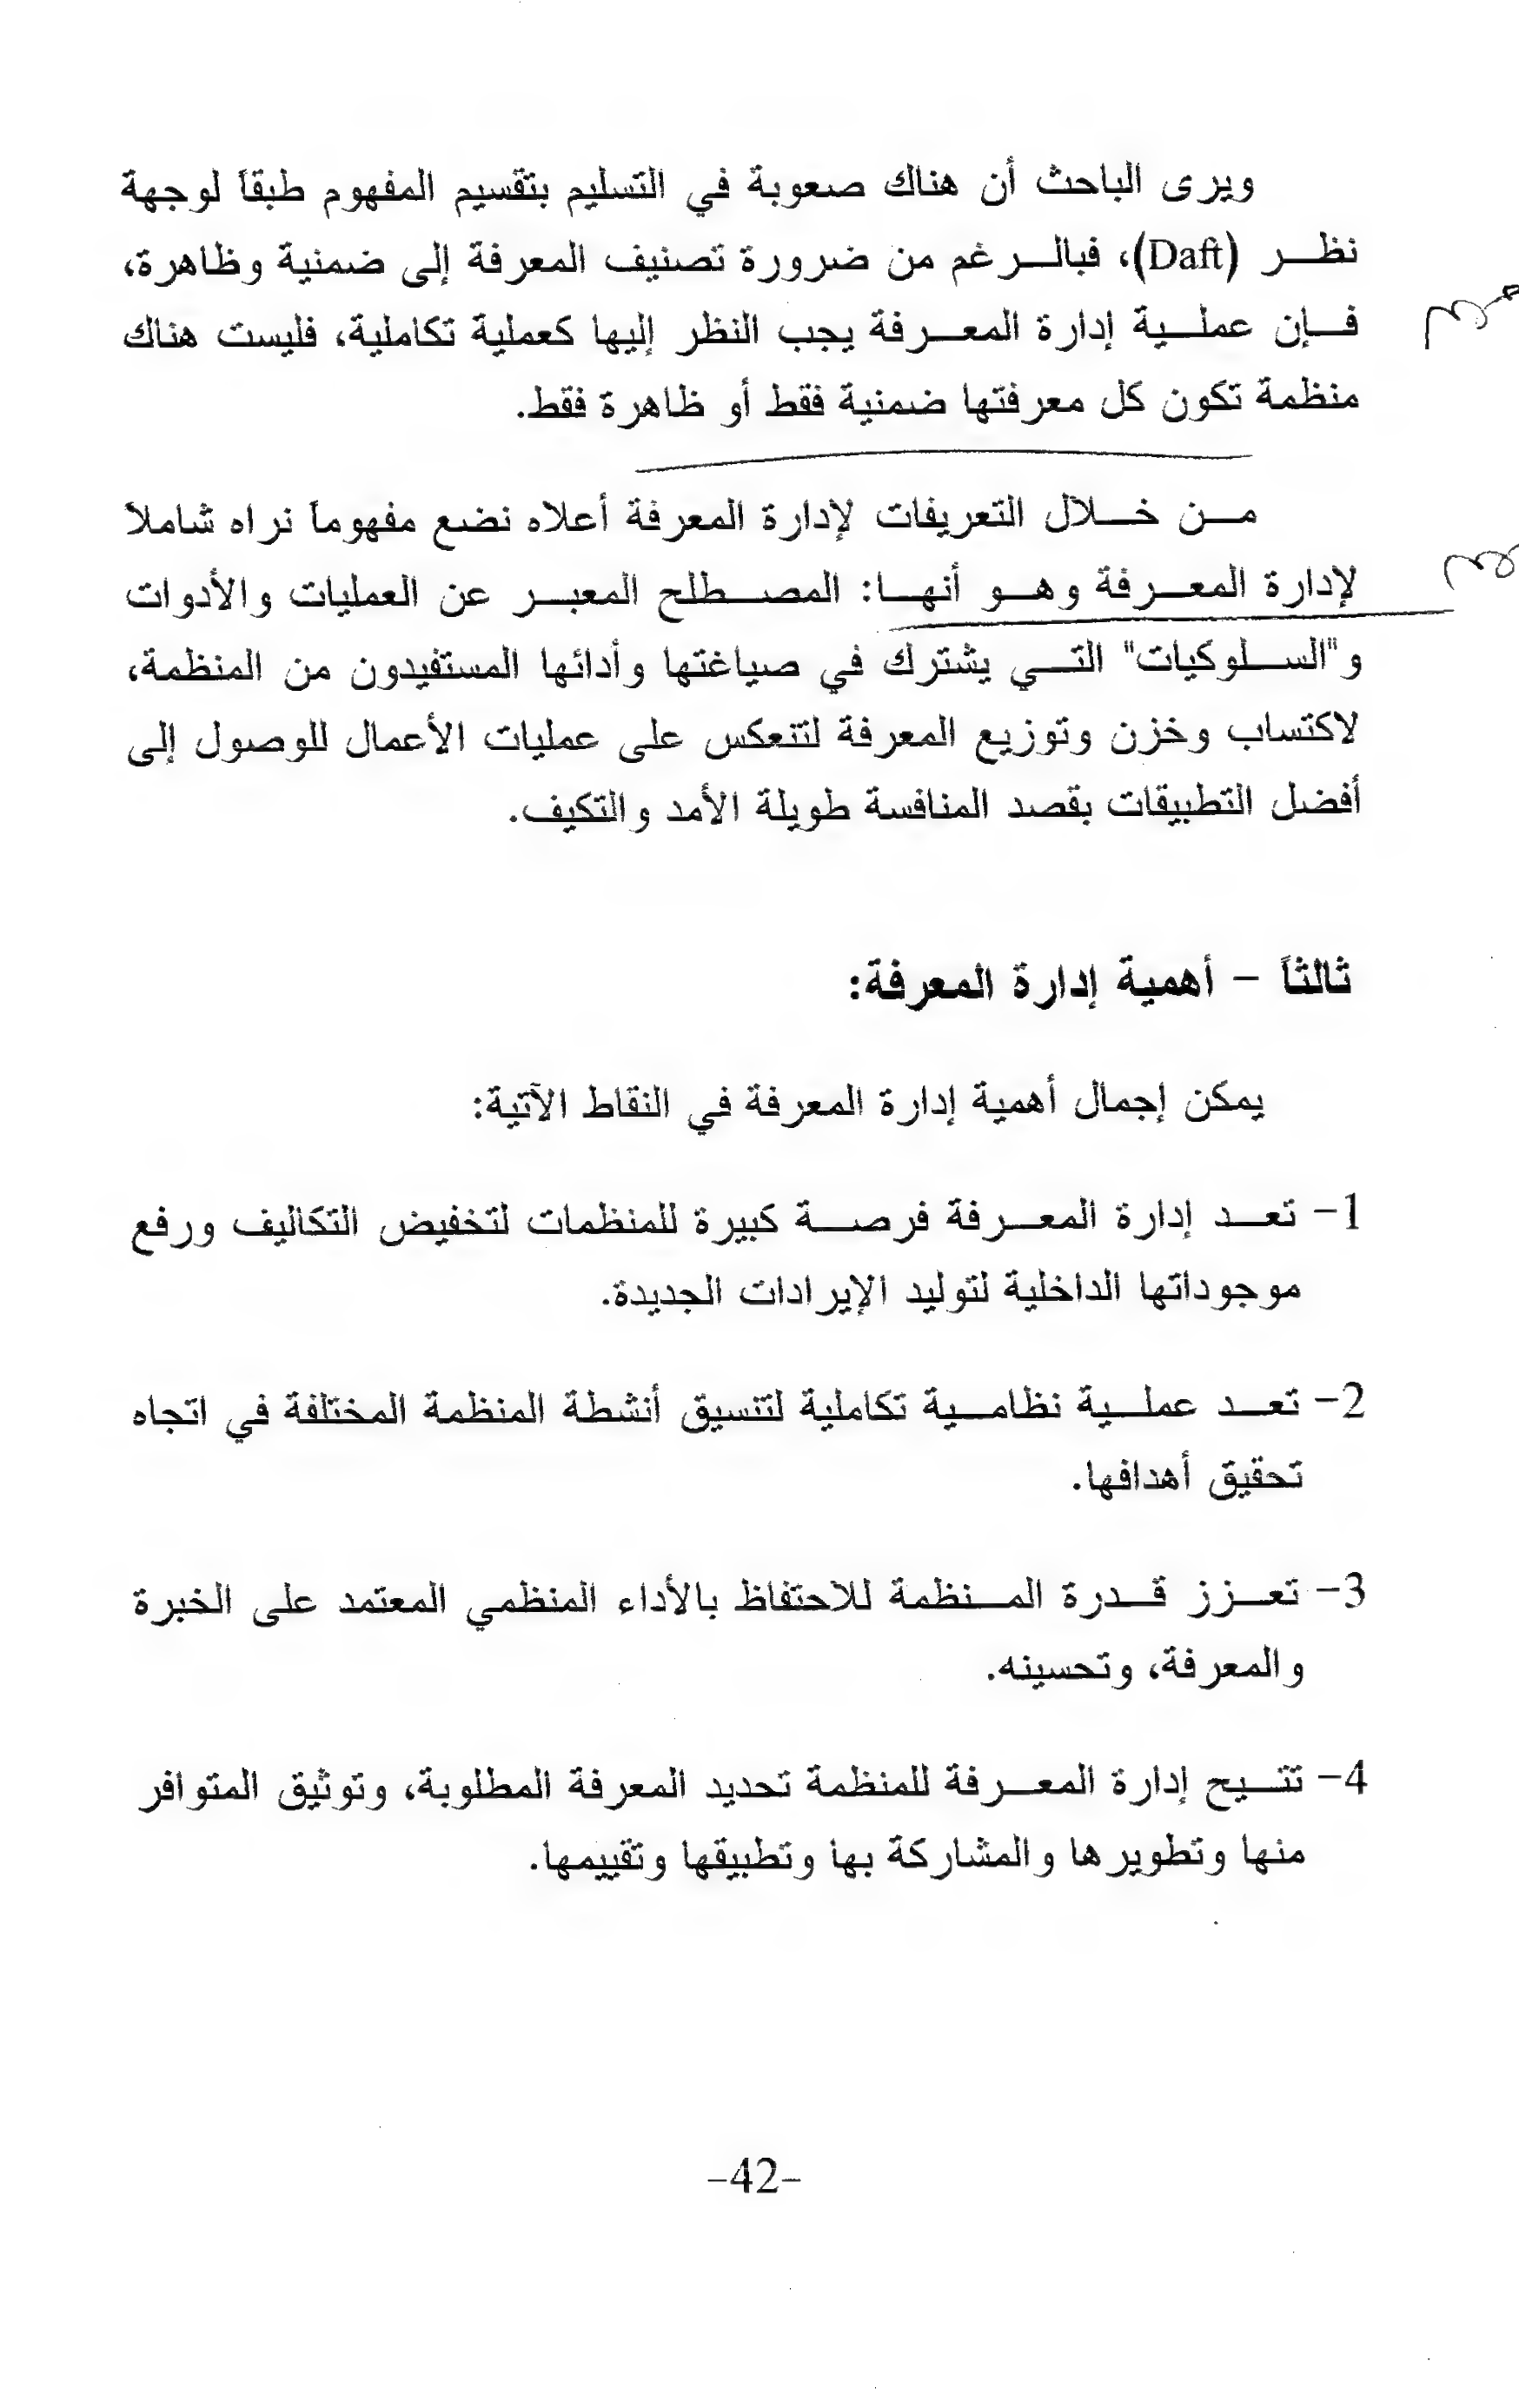 ويرى الباحث أن هناك صعوبة في التسليم بتقسيم المفهوم طبقاً لوجهة
نظر (Daft)، فبالرغم من ضرورة تصنيف المعرفة إلى ضمنية وظاهرة،
فإن عملية إدارة المعرفة يجب النظر إليها كعملية تكاملية، فليست هناك
منظمة تكون كل معرفتها ضمنية فقط أو ظاهرة فقط.
من خلال التعريفات لإدارة المعرفة أعلاه نضع مفهوماً نراه شاملاً
لإدارة المعرفة وهو أنها: المصطلح المعبر عن العمليات والأدوات
و"السلوكيات" التي يشترك في صياغتها وأدائها المستفيدون من المنظمة،
لاكتساب وخزن وتوزيع المعرفة لتنعكس على عمليات الأعمال للوصول إلى
أفضل التطبيقات بقصد المنافسة طويلة الأمد والتكيف.
ثالثاً - أهمية إدارة المعرفة:
يمكن إجمال أهمية إدارة المعرفة في النقاط الآتية:
1- تعد إدارة المعرفة فرصة كبيرة للمنظمات لتخفيض التكاليف ورفع
موجوداتها الداخلية لتوليد الإيرادات الجديدة.
2- تعد عملية نظامية تكاملية لتنسيق أنشطة المنظمة المختلفة في اتجاه
تحقيق أهدافها.
3- تعزز قدرة المنظمة للاحتفاظ بالأداء المنظمي المعتمد على الخبرة
والمعرفة، وتحسينه.
4- تتيح إدارة المعرفة للمنظمة تحديد المعرفة المطلوبة، وتوثيق المتوافر
منها وتطويرها والمشاركة بها وتطبيقها وتقييمها.
-42-